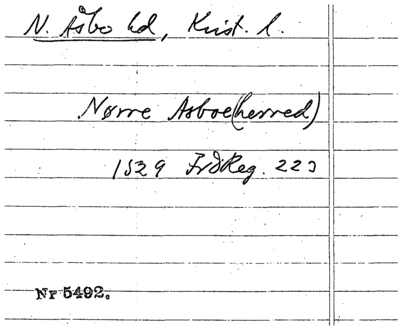 N. Åsbo hd, Krist. l.
Nørre Asboe(herred)
1529 FrdReg. 223
Nr 5492.